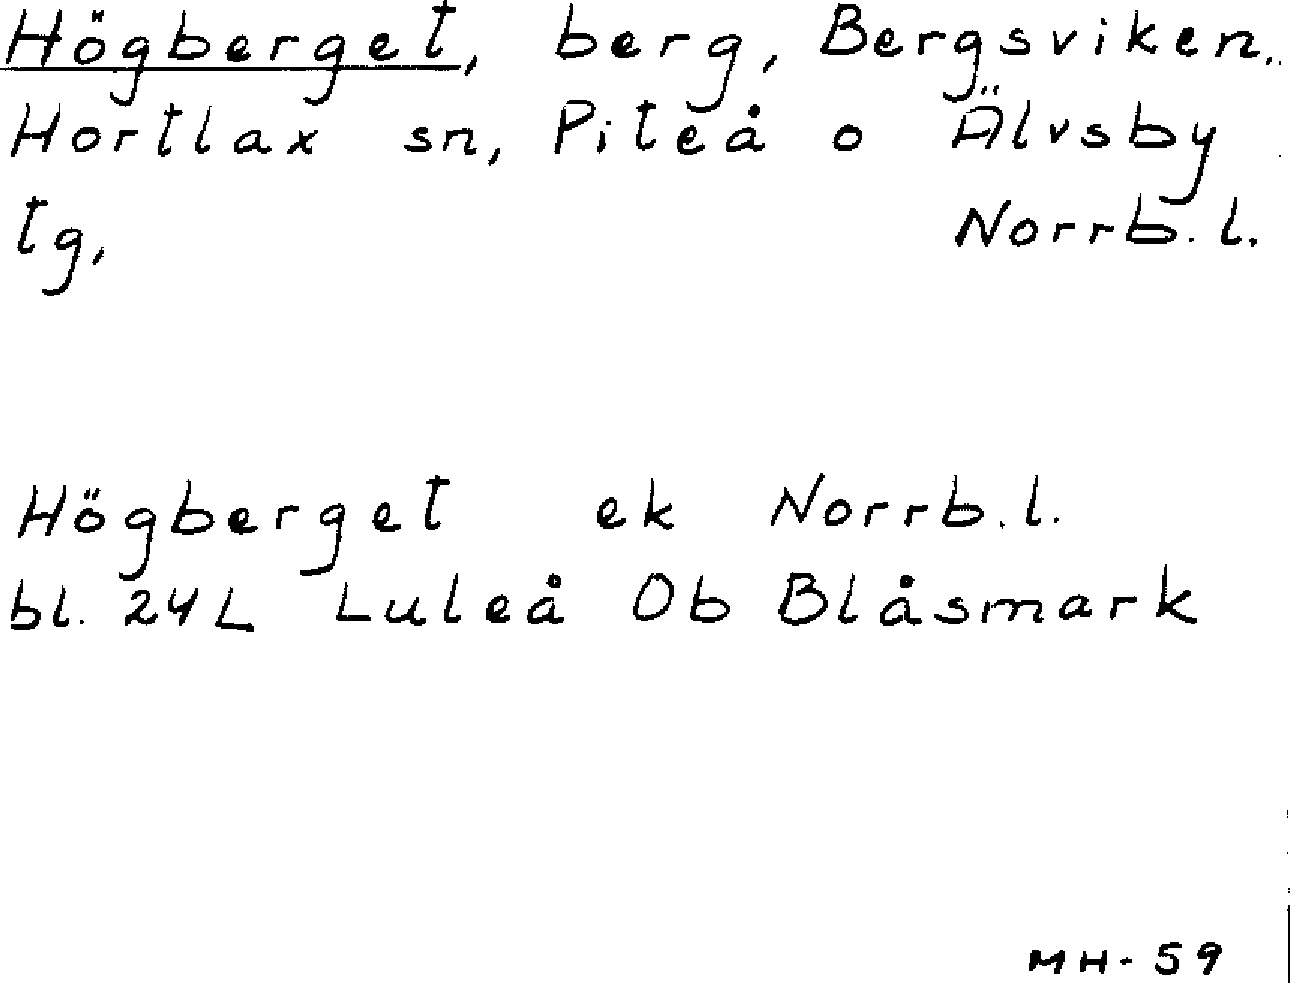 Högberget, berg, Bergsviken,
Hortlax sn, Piteå o Älvsby
tg, Norrb. l.
Högberget ek Norrb. l.
bl. 24L Luleå Ob Blåsmark
MH-59